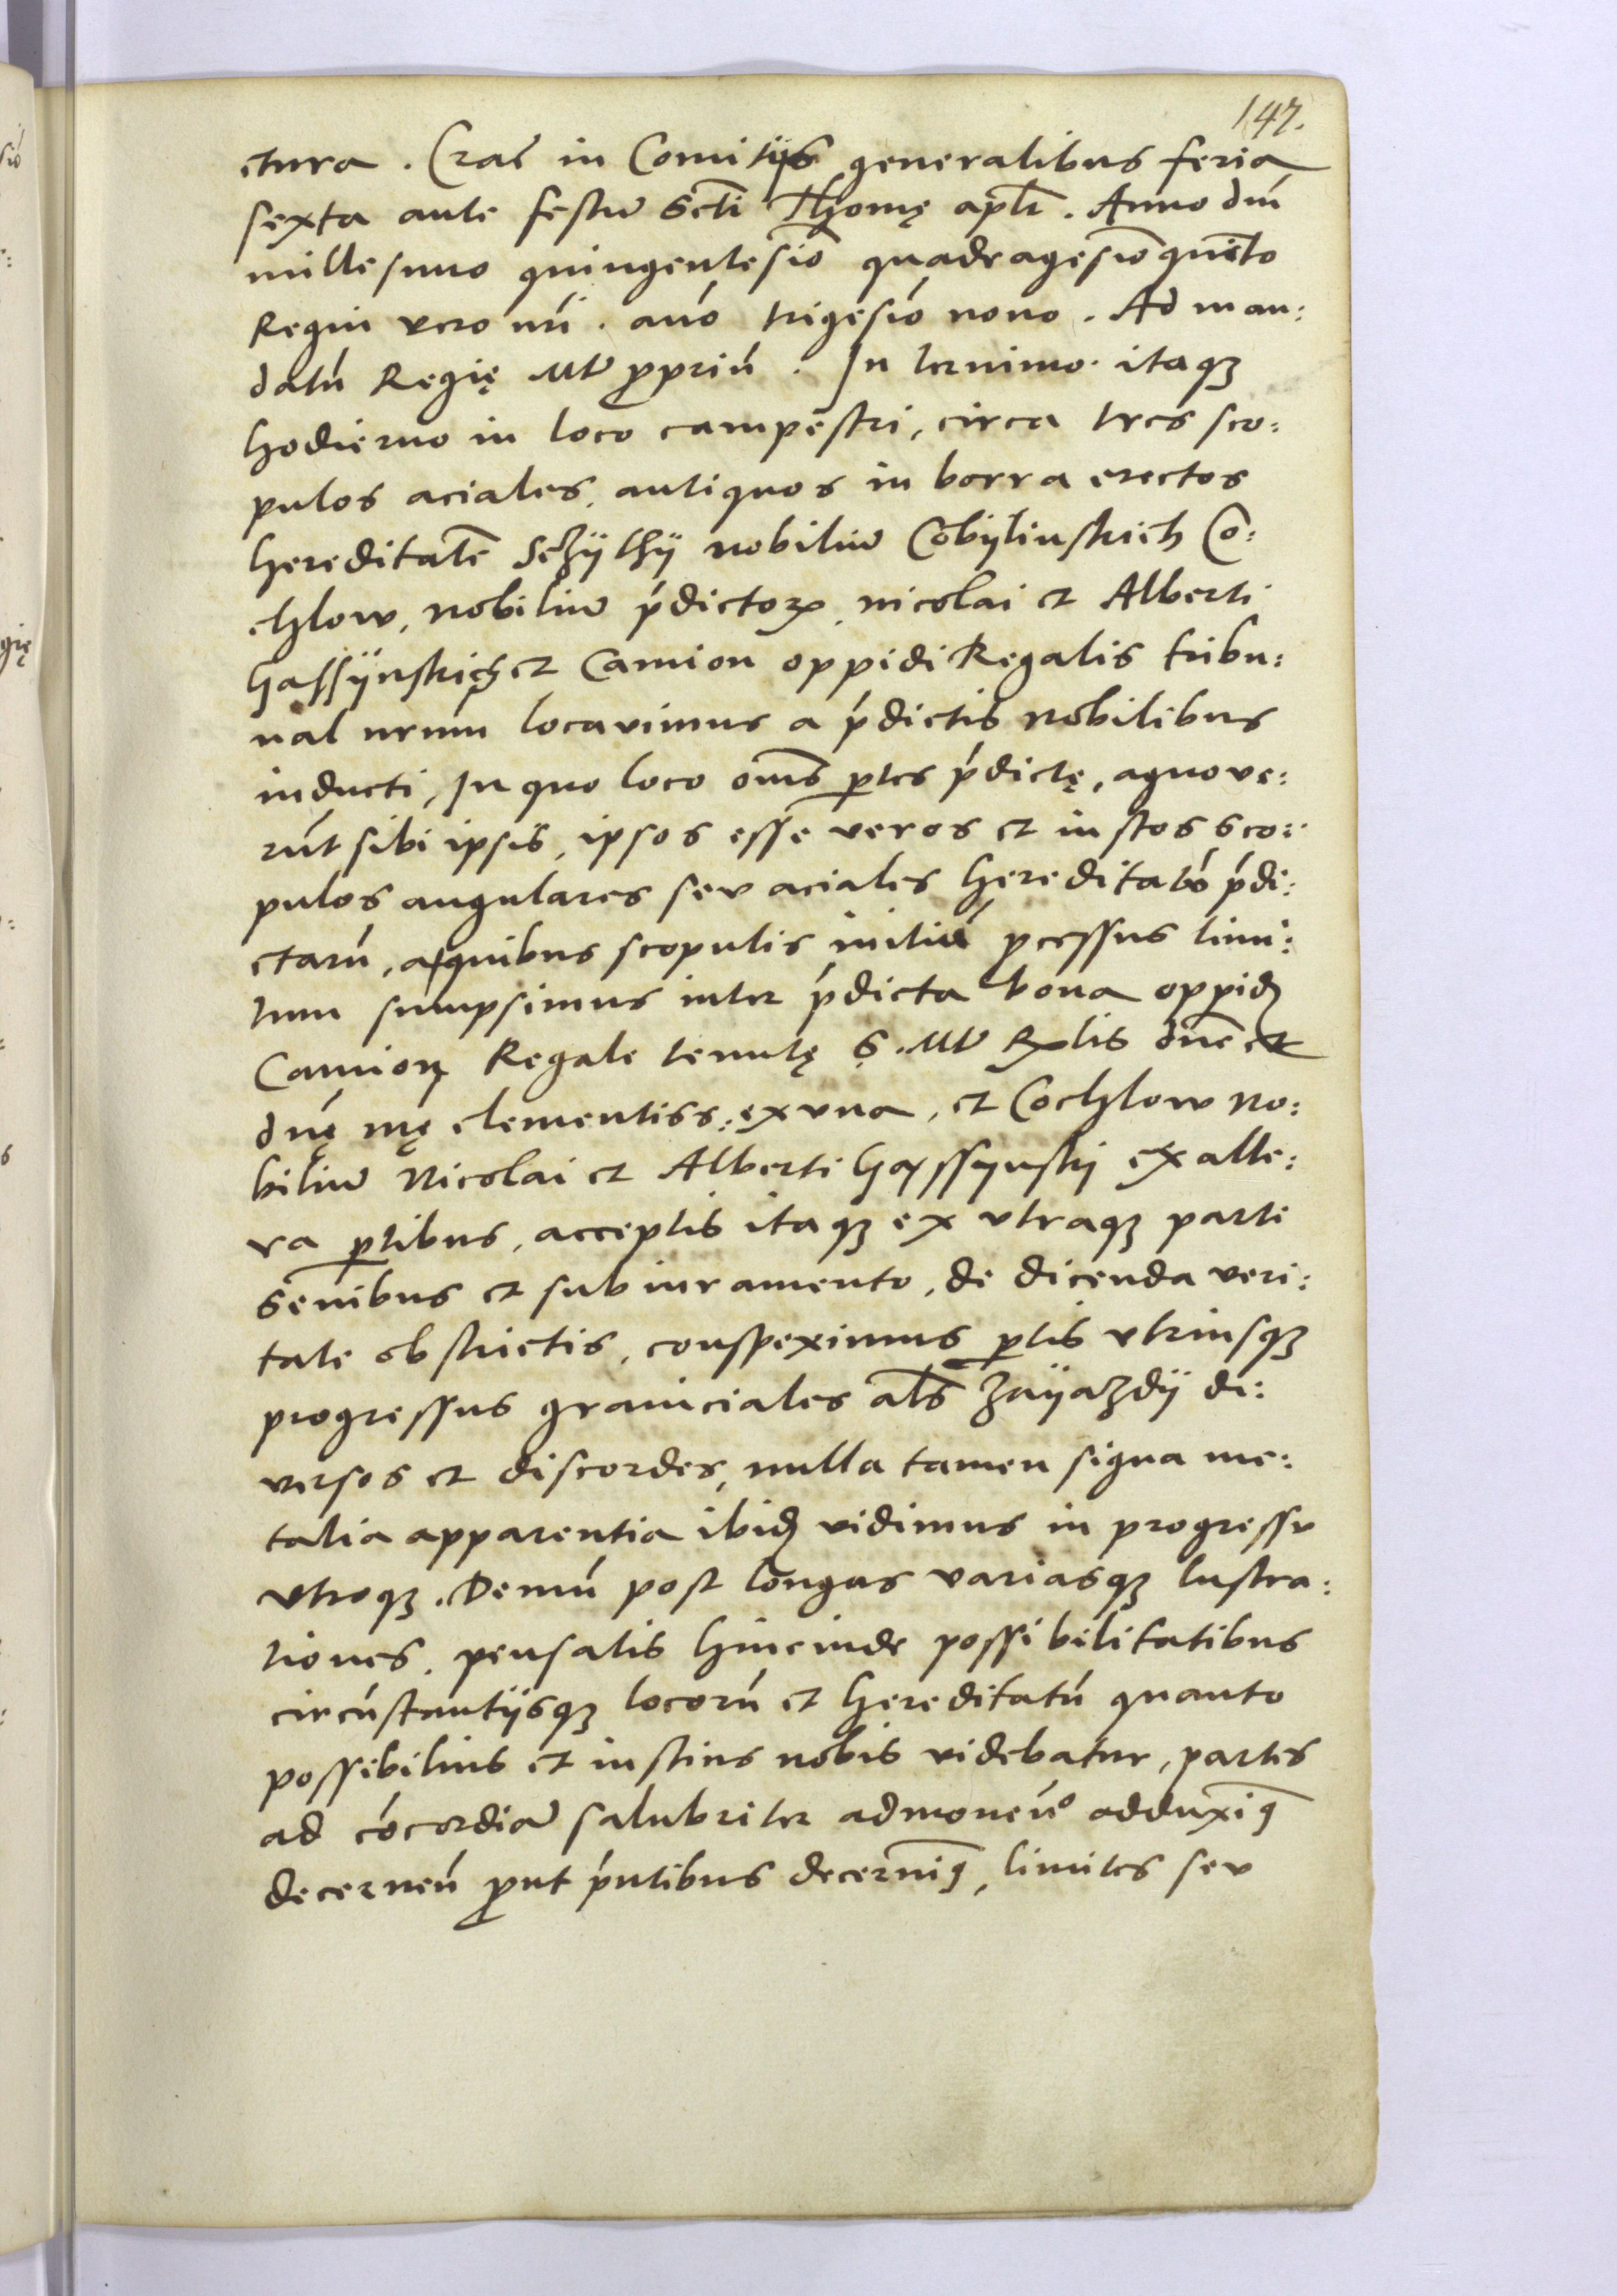 147.
ctura. Crac̄ in Comitijs generalibus feria
sexta ante festū Scti Thomę apli. Anno dnī
millesimo quingentesīo quadragesīo quīto
Regni vero nrī. anō trigesīo nono. Ad man:
datū Regię Mtis ppriū. In termino itaqȝ
hodierno in loco campestri, circa tres sco:
pulos aciales, antiquos in borra erectos
hereditatē nobiliū Cobijlinskich Co:
chlow, nobiliū pdictoꝝ, nicolai et Alberti
Gassijnskich et Camion oppidi Regalis tribu:
nal nrūm locavimus a pdictis nobilibus
inducti, In quo loco oms ptes pdictę, agnove:
rūt sibi ipsis, ipsos esse veros et iustos sco:
pulos angulares seu aciales hereditatū pdi:
ctarū, a quibus scopulis initiū pcessus limi:
tum sumpsimus inter pdicta bona oppidȝ
Camion Regale tenutę S. Mtis Rglis dnē et
dnę mę clementiss: ex vna, et Cochlow no:
biliū Nicolai et Alberti Gassijnskj ex alte:
ra ptibus, acceptis itaqȝ ex vtraqȝ parte
senibus et sub iuramento, de dicenda veri:
tate obstrictis, conspeximus ptis vtriusqȝ
progressus graniciales als Zayazdij di:
versos et discordes, nulla tamen signa me:
talia apparentia ibidȝ vidimus in progressu
vtroqȝ. Demū post longas variasqȝ lustra:
tiones, pensatis hincinde possibilitatibus
circūstantijsqȝ locorū et hereditatū quanto
possibilius et iustius nobis videbatur, partes
ad cōcordiā salubriter admonen̄o adduxiꝰ
decernen̄ put pntibus decernīꝰ, limites seu